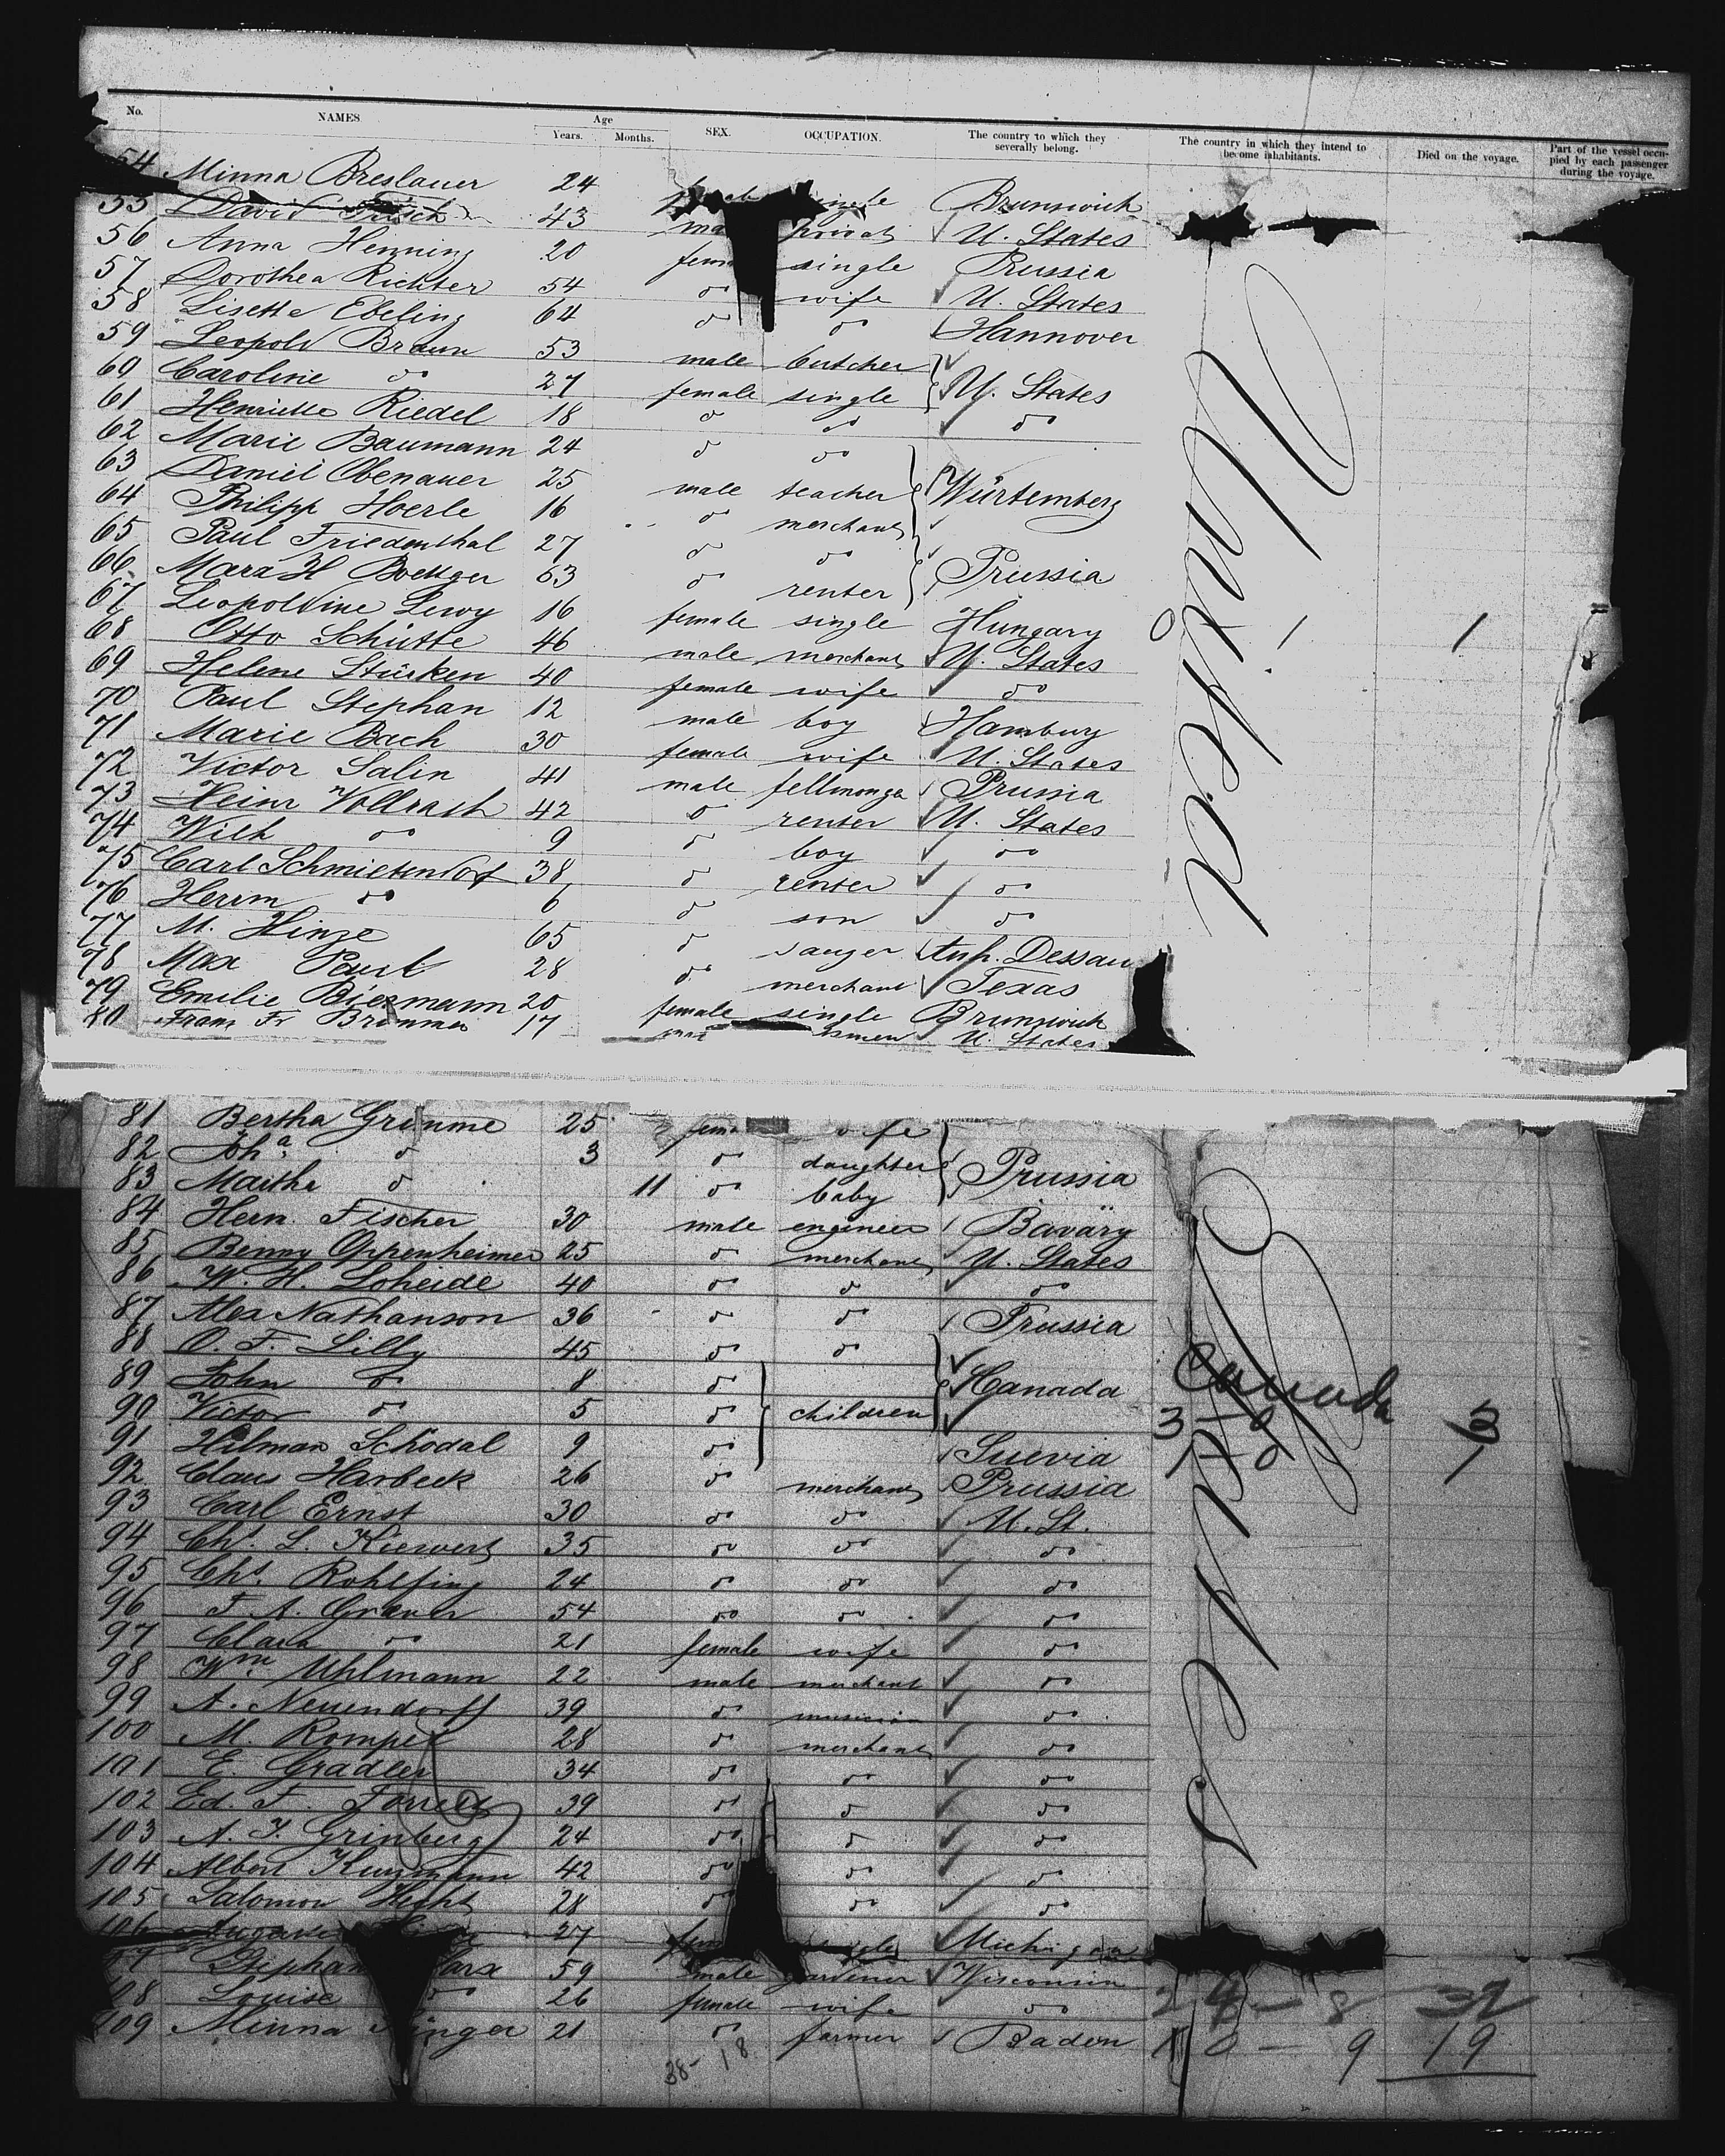 No. NAMES Age Years. Months. SEX. OCCUPATION. The country to which they severally belong. The country in which they intend to become inhabitants. Died on the voyage. Part of the vessel occupied by each passenger during the voyage.
54 Minna Breslauer 24 single Brunswick
55 David 43 privat U. States
56 Anna Henning 20 single Prussia
57 Dorothea Richter 54 do wife U. States
58 Lisette Ebeling 64 do do Hannover
59 Leopold Braun 53 male butcher
60 Caroline do 27 female single U. States
61 Henriette Riedel 18 do do do
62 Marie Baumann 24 do do
63 Daniel Obenauer 25 male teacher Würtemberg
64 Philipp Hoerle 16 do merchant
65 Paul Friedenthal 27 do do
66 Boettger 63 do renter Prussia
67 Leopoldine Lewy 16 female single Hungary 0 1 1
68 Otto Schütte 46 male merchant U. States
69 Helene Stürken 40 female wife do
70 Paul Stephan 12 male boy Hamburg
71 Marie Bach 30 female wife U. States
72 Victor Salin 41 male fellmonger Prussia
73 Heinr Vollrath 42 do renter U. States
74 Wilh do 9 do boy do
75 Carl Schmietendorf 38 do renter do
76 Herrm do 6 do son do
77 M. Hinze 65 do Anh. Dessau
78 Max 28 do merchant Texas
79 Emilie Biermann 20 female single Brunswick
80 Franz Fr 17 U. States
81 Bertha Grimme 25 wife
82 Joha do 3 do daughter Prussia
83 Martha do 11 do baby
84 Herm. Fischer 30 male engineer Baváry
85 Benny Oppenheimer 25 do merchant U. States
86 W. H. Loheide 40 do do do
87 Alex Nathanson 36 do do Prussia
88 O. F. Lilly 45 do do
89 John do 8 do Canada Canada
90 Victor do 5 do children 3 - 0 3
91 Hilman Schodal 9 do Suevia 1 - 0 1
92 Claus Harbeck 26 do merchant Prussia
93 Carl Ernst 30 do do U. St.
94 Chs. L. Kiewert 35 do do do
95 Chs. Rohlfing 24 do do do
96 54 do do do
97 Clara do 21 female wife do
98 Wm Uhlmann 22 male merchant do
99 A. Neuendorff 39 do musician do
100 M. 28 do merchant do
101 E. Gradler 34 do do do
102 Ed. F. 39 do do do
103 A. J. Grinberg 24 do do do
104 Albert 42 do do do
105 Salomon Hecht 28 do do do
106 27 Michigan
59 male gardener Wisconsin
Louise do 26 female wife do 24 - 8 32
109 Minna 21 do farmer Baden 10 - 9 19
38 - 18